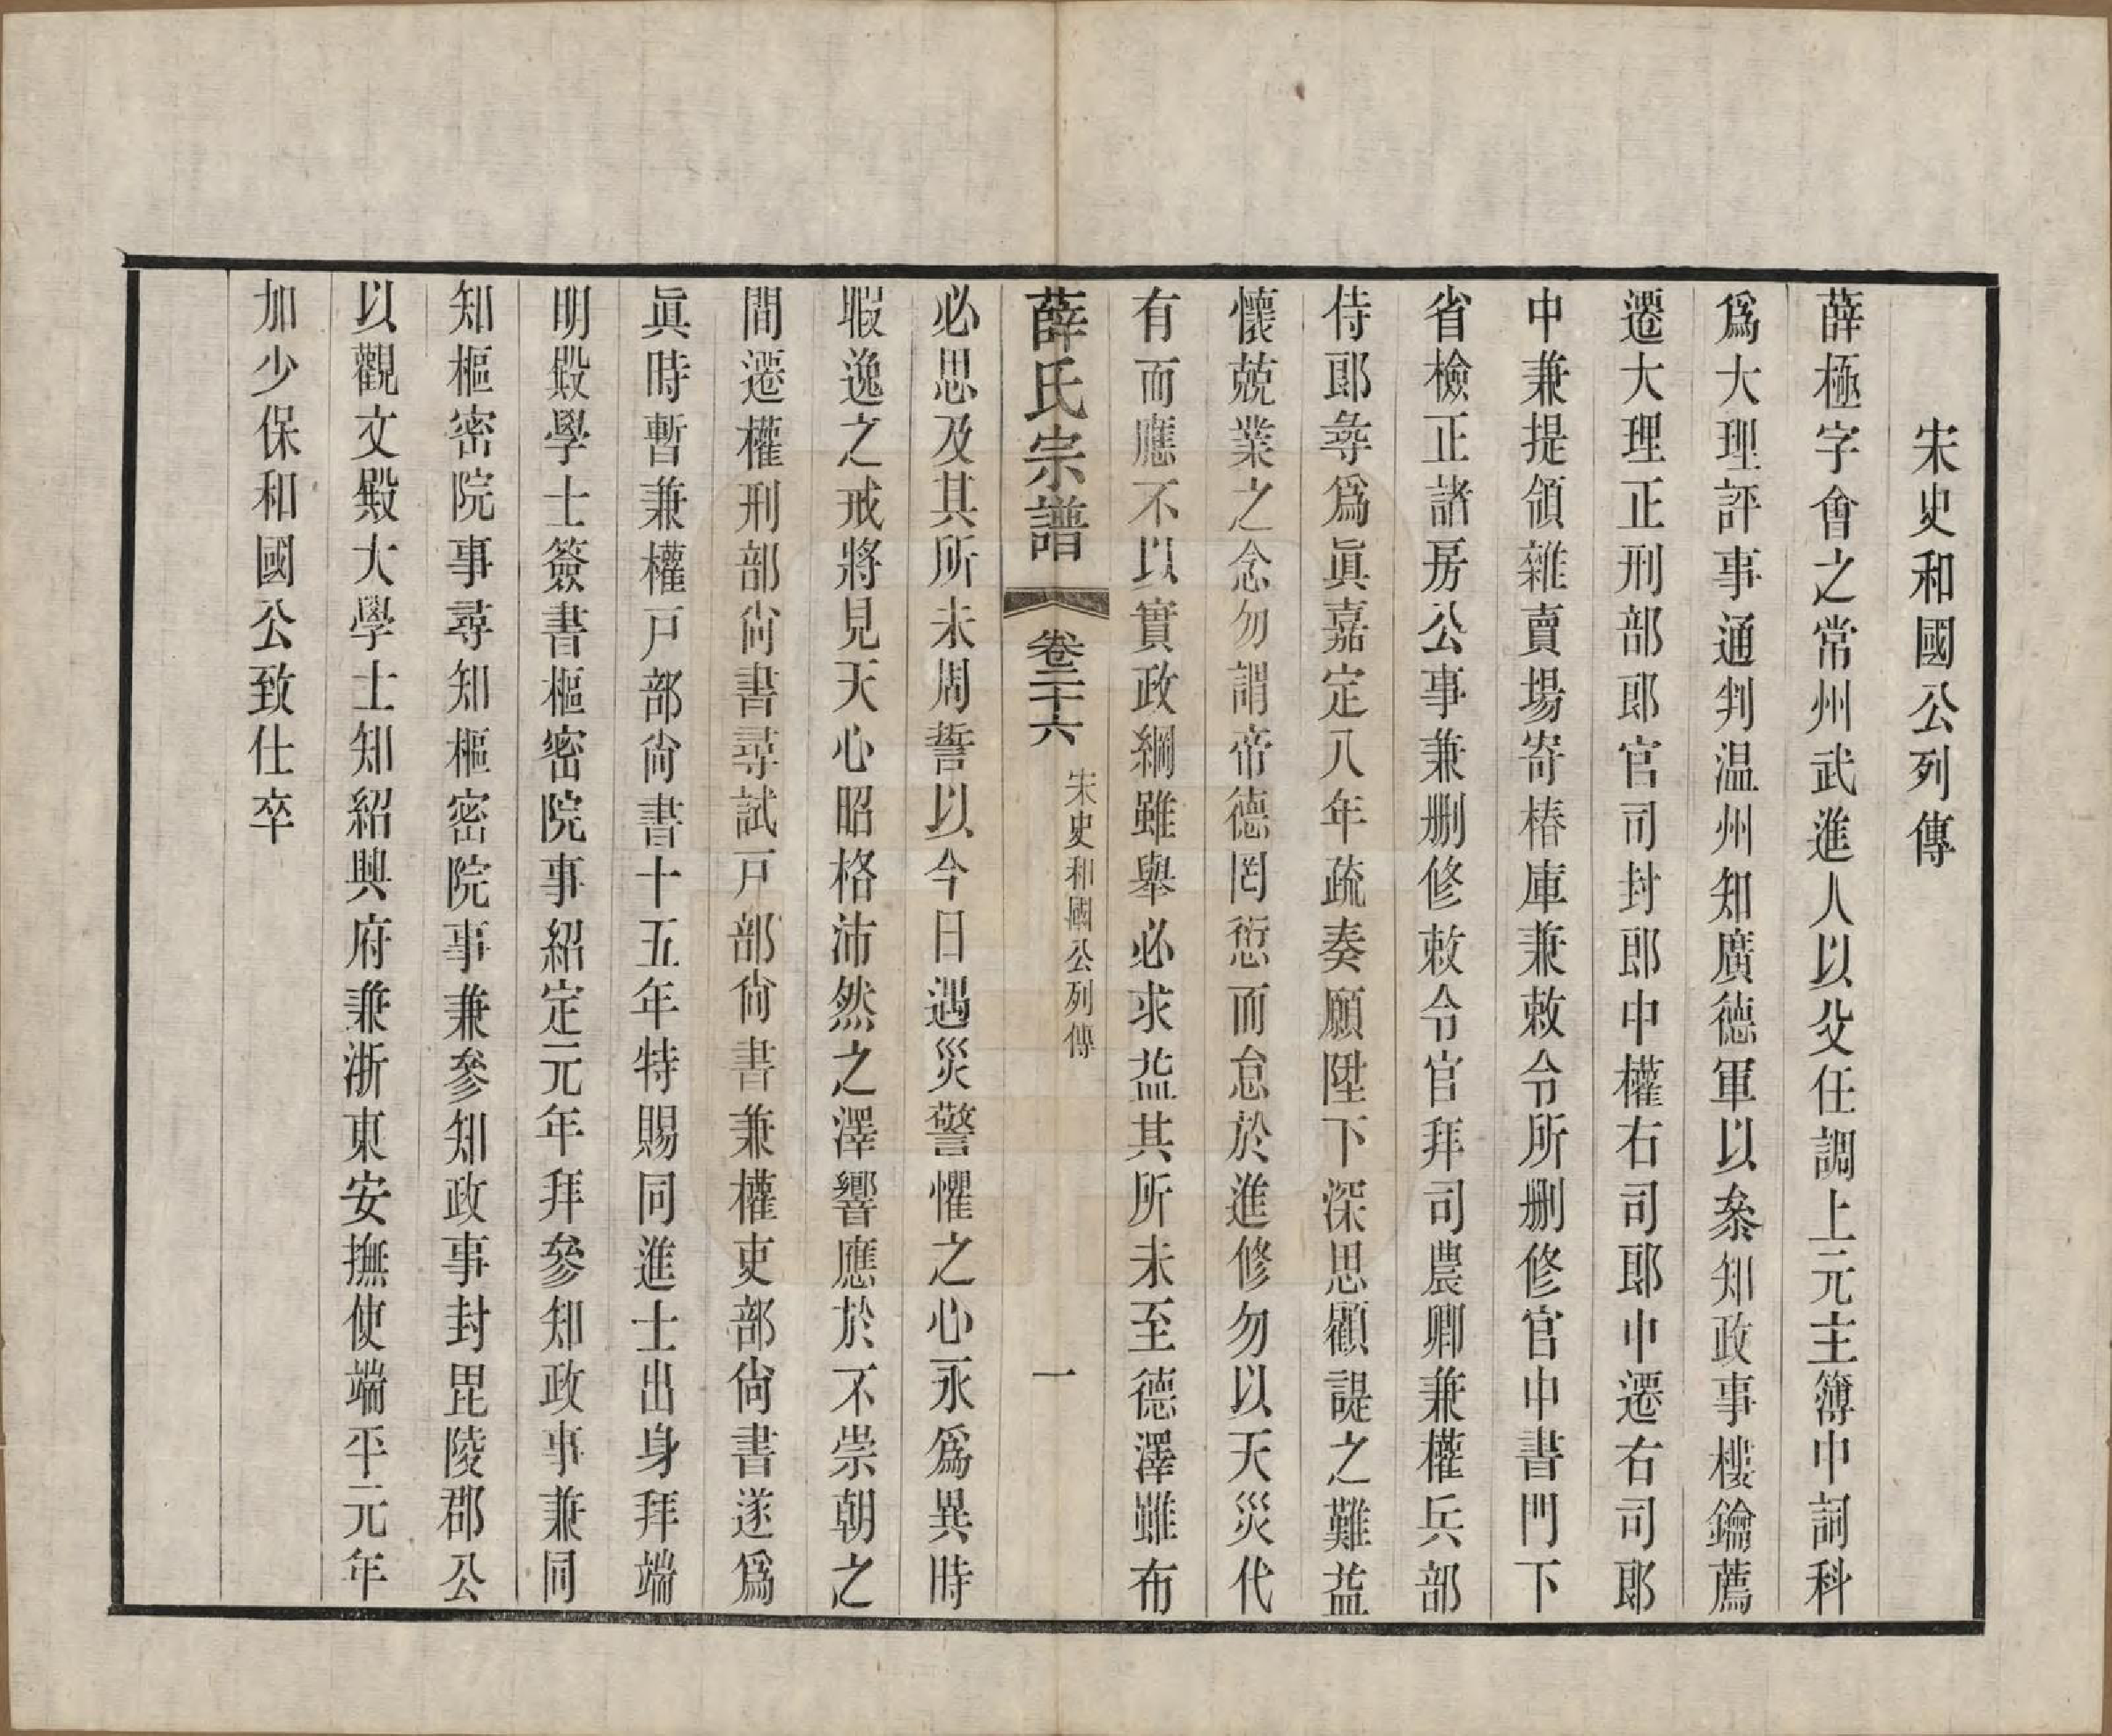 宋史和國公列傳
薛極字會之常州武進人以父任調上元主簿中詞科
爲大理評事通判温州知廣德軍以叅知政事樓鑰薦
遷大理正刑部郎官司封郎中權右司郎中遷右司郎
中兼提領雜賣場寄樁庫兼敕令所刪修官中書門下
省檢正諸房公事兼刪修敕令官拜司農卿兼權兵部
侍郎尋爲眞嘉定八年疏奏願陞下深思顧諟之難益
懷兢業之念勿謂帝德罔愆而怠於進修勿以天災代
有而應不以實政綱雖舉必求益其所未至德澤雖布
薛氏宗譜 卷二十六 宋史和國公列傳 一
必思及其所未周誓以今日遇災警懼之心永爲異時
暇逸之戒將見天心昭格沛然之澤響應於不崇朝之
間遷權刑部尙書尋試戸部尙書兼權吏部尙書遂爲
眞時暫兼權戸部尙書十五年特賜同進士出身拜端
明殿學士簽書樞密院事紹定元年拜參知政事兼同
知樞密院事尋知樞密院事兼參知政事封毘陵郡公
以觀文殿大學士知紹興府兼浙東安撫使端平元年
加少保和國公致仕卒